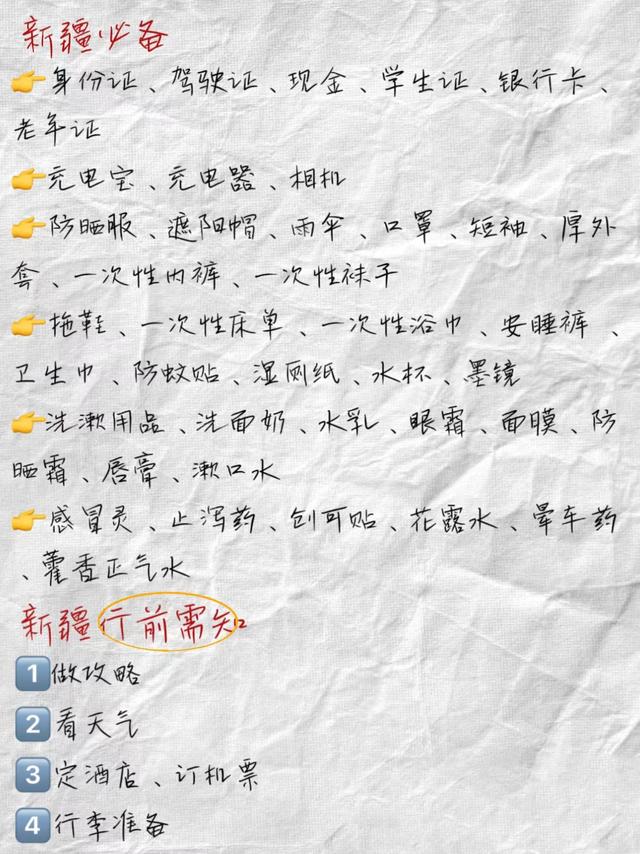 新疆必备
👉身份证、驾驶证、现金、学生证、银行卡、
老年证
👉充电宝、充电器、相机
👉防晒服、遮阳帽、雨伞、口罩、短袖、厚外
套、一次性内裤、一次性袜子
👉拖鞋、一次性床单、一次性浴巾、安睡裤、
卫生巾、防蚊贴、湿厕纸、水杯、墨镜
👉洗漱用品、洗面奶、水乳、眼霜、面膜、防
晒霜、唇膏、漱口水
👉感冒灵、止泻药、创可贴、花露水、晕车药
、藿香正气水
新疆行前需知
1做攻略
2看天气
3定酒店、订机票
4行李准备